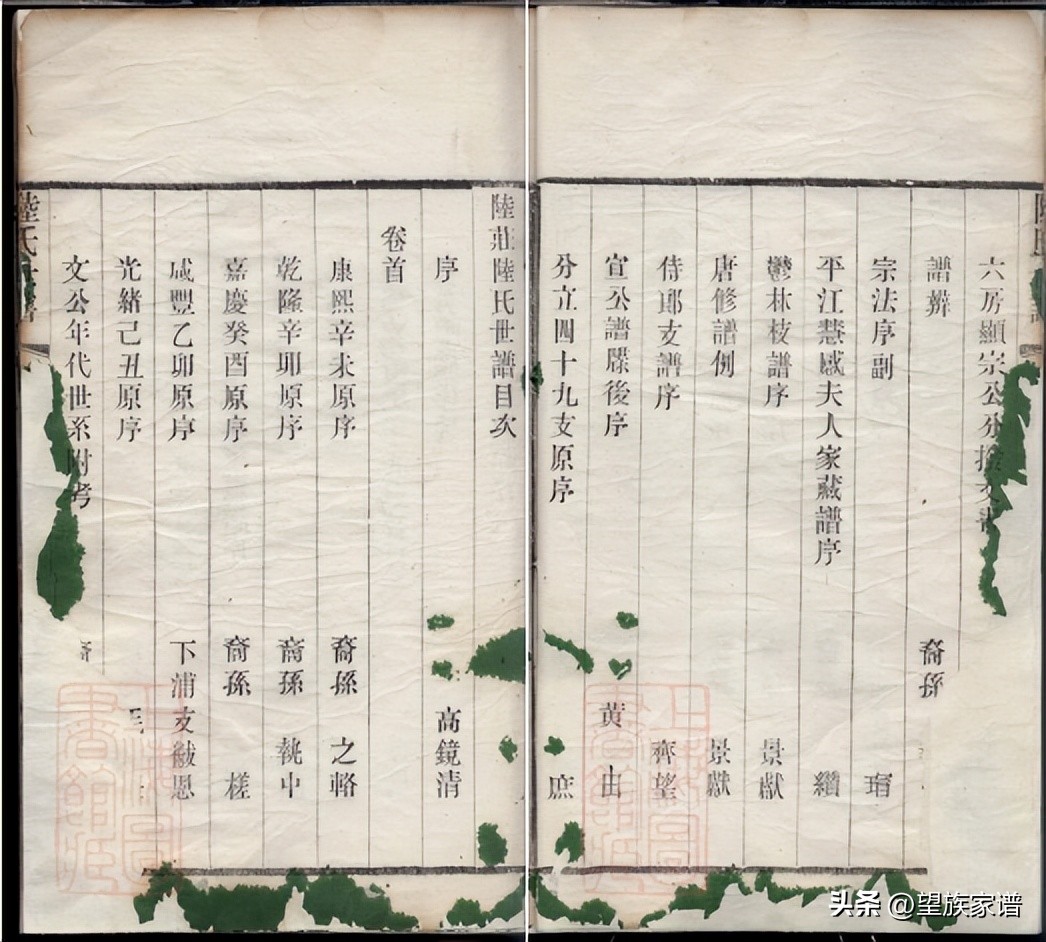 陸莊陸氏世譜目次
序 高鏡清
卷首
康熙辛未原序 裔孫 之輅
乾隆辛卯原序 裔孫 執中
嘉慶癸酉原序 裔孫 槎
咸豐乙卯原序 下浦支紱恩
光緒己丑原序
文公年代世系附考
陸氏世譜
六房顯宗公分撥文書
譜辨 裔孫
宗法序副
平江慧感夫人家藏譜序 纘
鬱林枝譜序 景獻
唐修譜例 景獻
侍郎支譜序 齊望
宣公譜牒後序 黄由
分立四十九支原序 庶
上海圖書館藏
上海圖書館藏
头条 @望族家谱